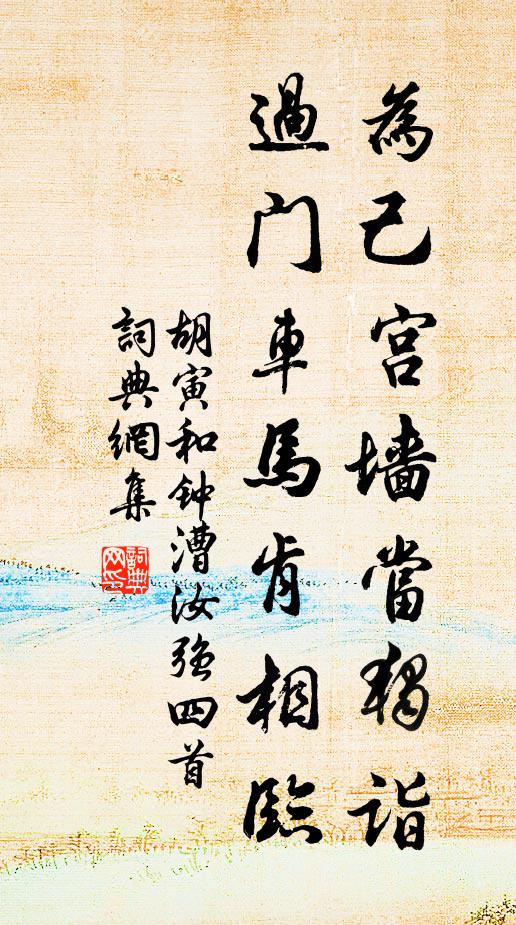 為己宫墙當独詣
過门車馬肯相臨
胡寅和钟漕汝强四首
詞典網集